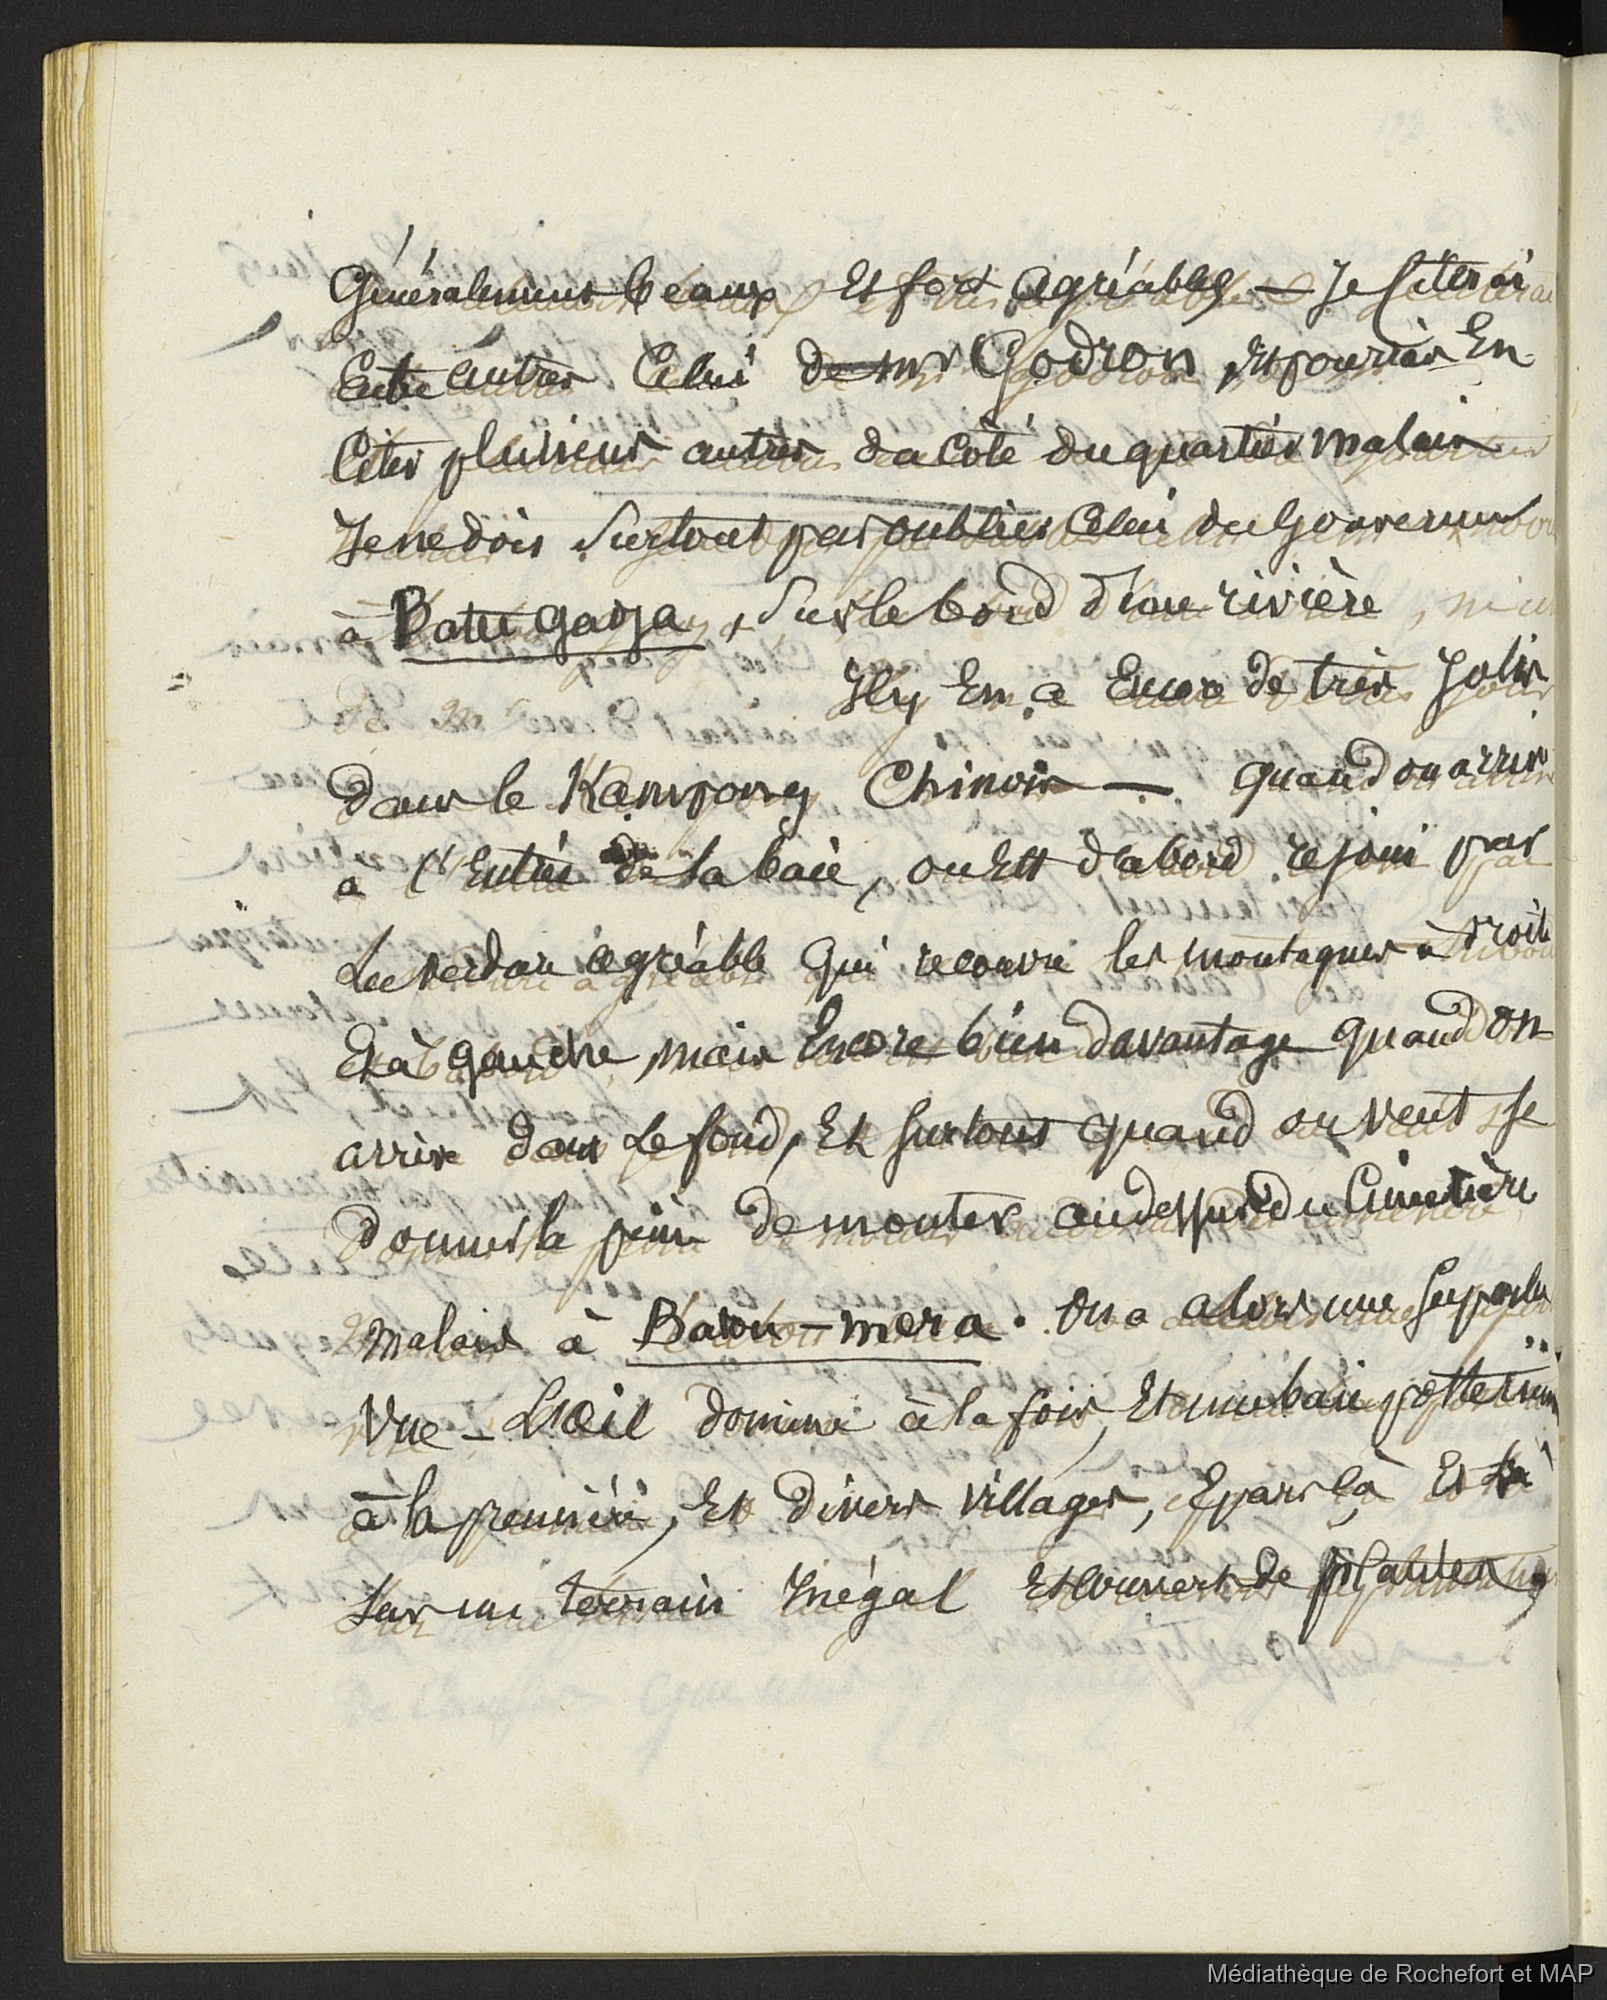 Généralement beaux et fort agréables — Je citerai
Entre autres celui de mr Godron, et pourrais En
Citer plusieurs autres du Coté du quartier malais
Je ne dois surtout pas oublier Celui du Gouverneur
à Batu gaja, sur le bord d'une rivière
Il y En a Encore de très Jolis
dans le Kampong Chinois — quand on arrive
à l'Entrée de la baie, on Est d'abord rejoui par
La verdure agréable qui recouvre les montagnes à droite
Et à gauche, mais Encore bien davantage quand on
arrive dans Le fond, Et surtout quand on veut se
donner la peine de monter au dessus du Cimetière
malais à Batou-mera. On a alors une superbe
Vue — L'œil domine à la fois, Et une baie
à la première, Et divers villages, Epars çà Et là
Sur un terrain Inégal Et couvert de plantes,
Médiathèque de Rochefort et MAP